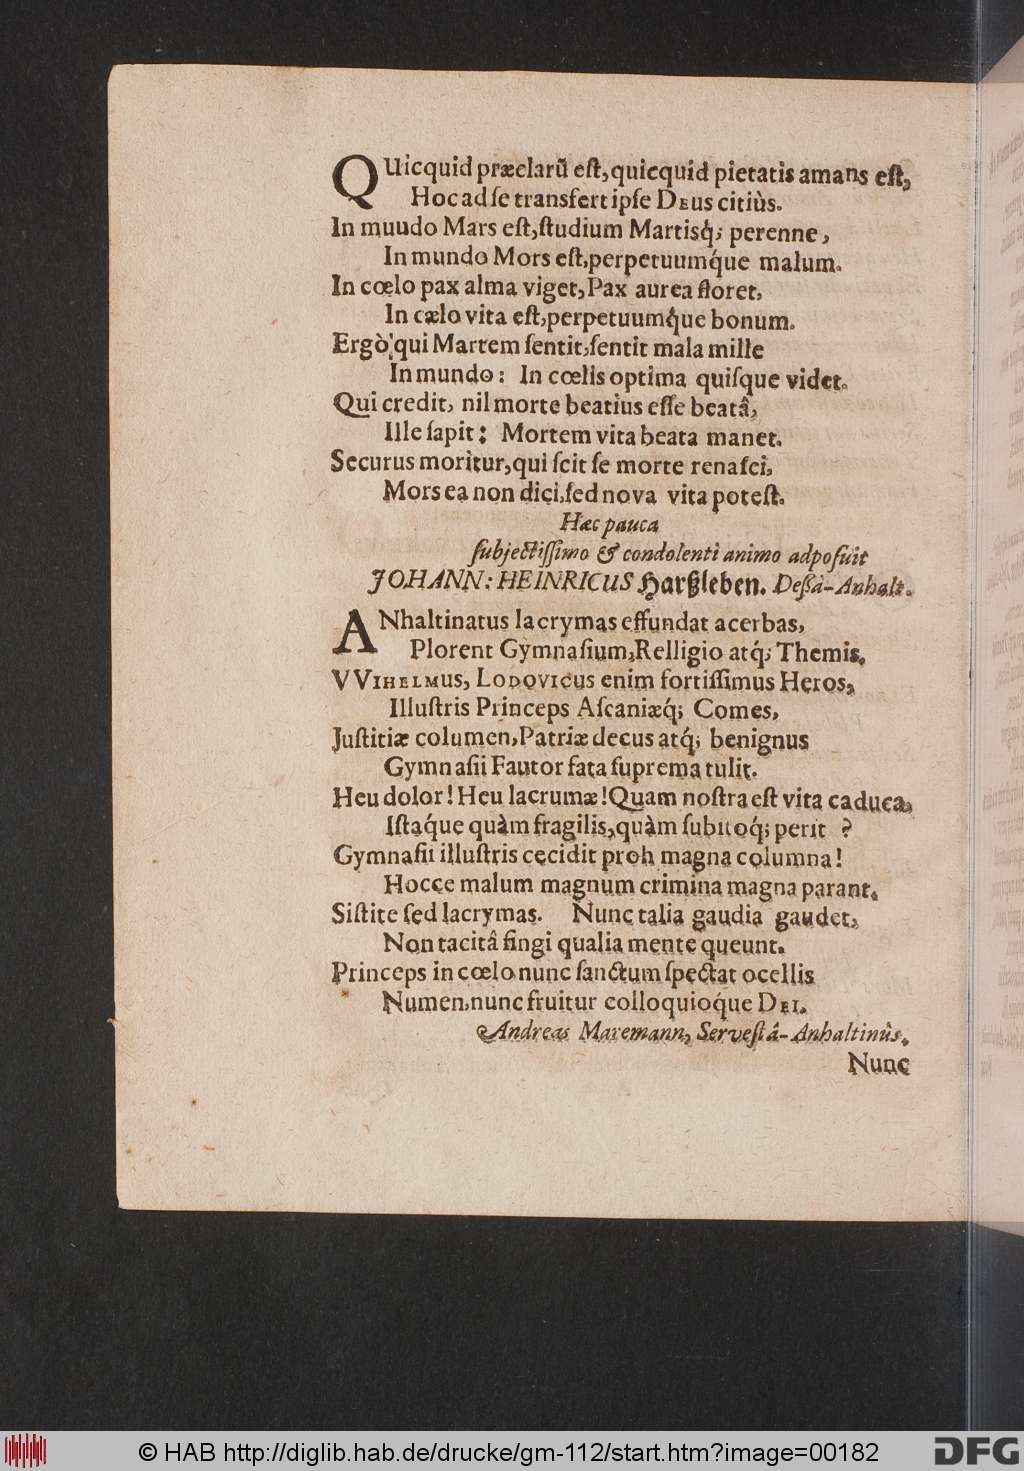 QUicquid præclarũ eſt, quicquid pietatis amans eſt,
Hoc ad ſe transfert ipſe DEUS citiùs.
In muudo Mars eſt, ſtudium Martisq́; perenne,
In mundo Mors eſt, perpetuumq́ue malum.
In cœlo pax alma viget, Pax aurea floret,
In cælo vita eſt, perpetuumq́ue bonum.
Ergò qui Martem ſentit, ſentit mala mille
In mundo: In cœlis optima quiſque videt.
Qui credit, nil morte beatius eſſe beatâ,
Ille ſapit: Mortem vita beata manet.
Securus moritur, qui ſcit ſe morte renaſci,
Mors ea non dici, ſed nova vita poteſt.
Hæc pauca
ſubjectiſſimo & condolenti animo adpoſuit
JOHANN: HEINRICUS Harßleben. Deßâ-Anhalt.
ANhaltinatus lacrymas effundat acerbas,
Plorent Gymnaſium, Relligio atq́; Themis.
VVIHELMUS, LODOVICUS enim fortiſſimus Heros,
Illuſtris Princeps Aſcaniæq́; Comes,
Juſtitiæ columen, Patriæ decus atq́; benignus
Gymnaſii Fautor fata ſuprema tulit.
Heu dolor! Heu lacrumæ! Quam noſtra eſt vita caduca,
Iſtaq́ue quàm fragilis, quàm ſubitoq́; perit ?
Gymnaſii illuſtris cecidit proh magna columna!
Hocce malum magnum crimina magna parant.
Siſtite ſed lacrymas. Nunc talia gaudia gaudet,
Non tacitâ fingi qualia mente queunt.
Princeps in cœlo nunc ſanctum ſpectat ocellis
Numen, nunc fruitur colloquioq́ue DEI.
Andreas Maremann, Serveſtâ-Anhaltinus.
Nunc
© HAB http://diglib.hab.de/drucke/gm-112/start.htm?image=00182
DFG